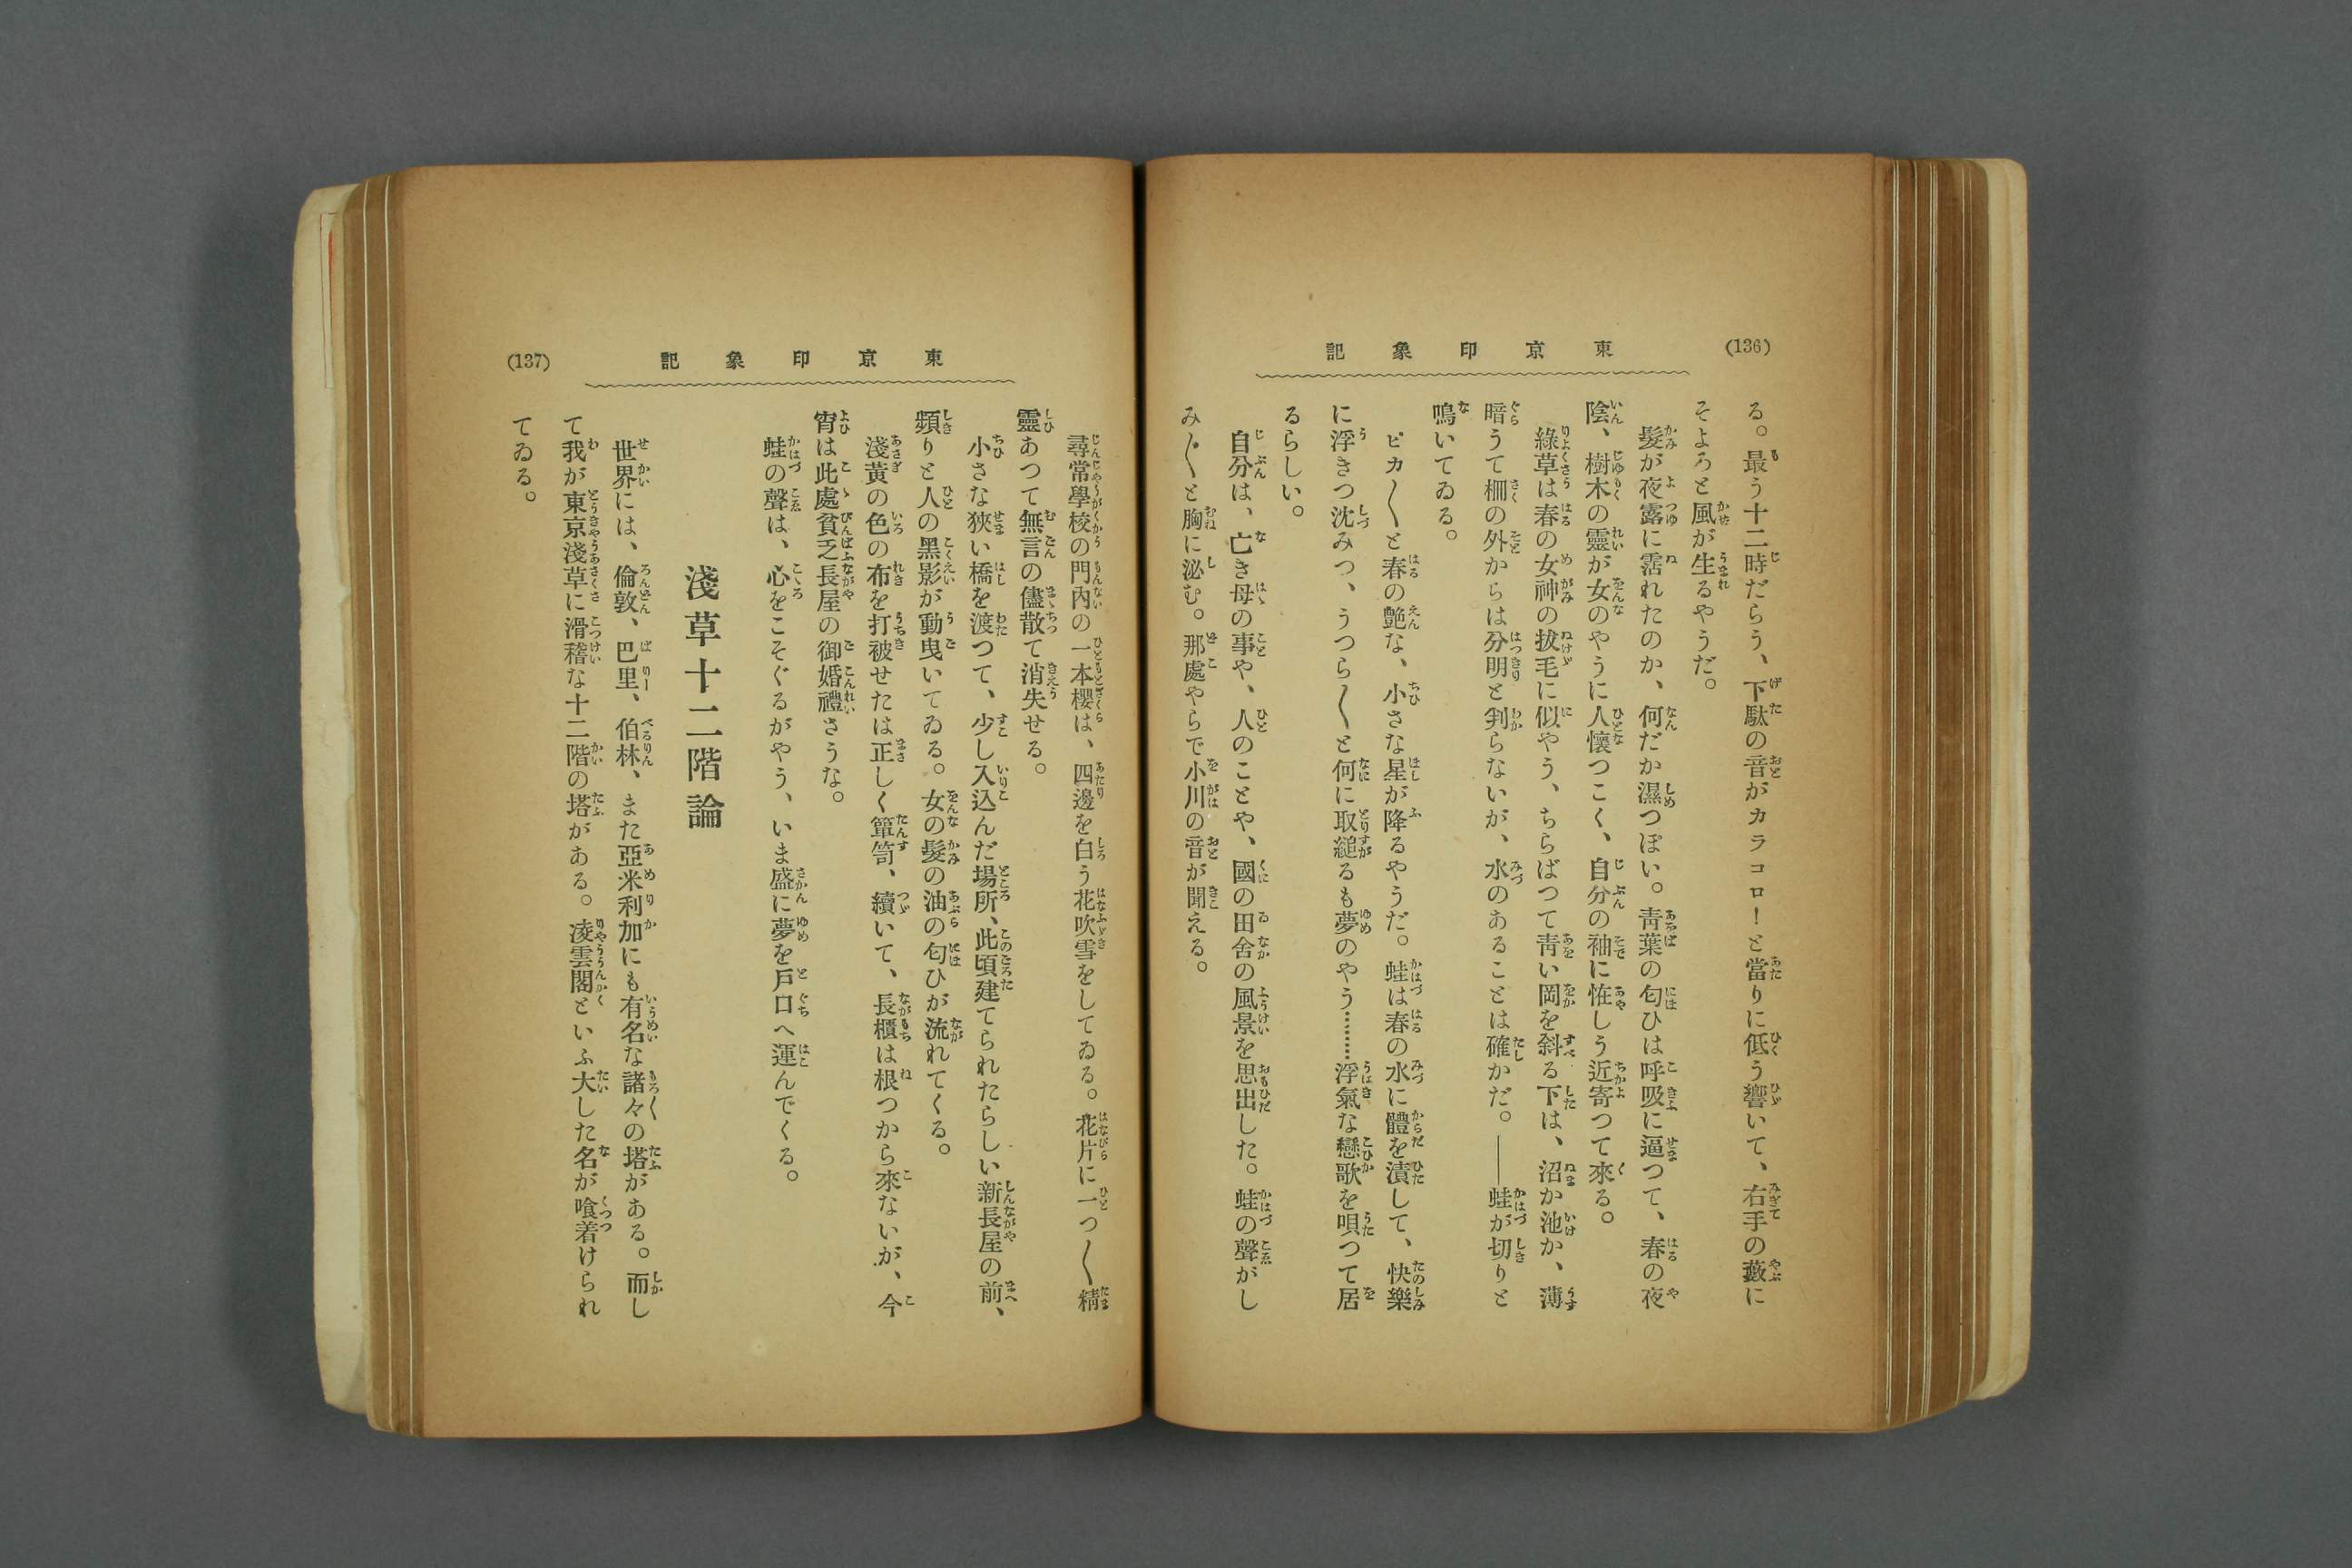 (136)
東京印象記
る。最う十二時だらう、下駄の音がカラコロ！と當りに低う響いて、右手の藪に
そよろと風が生るやうだ。
髮が夜露に霑れたのか、何だか濕つぽい。靑葉の匂ひは呼吸に逼つて、春の夜
陰、樹木の靈が女のやうに人懷つこく、自分の袖に恠しう近寄つて來る。
綠草は春の女神の拔毛に似やう、ちらばつて靑い岡を斜る下は、沼か池か、薄
暗うて柵の外からは分明と判らないが、水のあることは確かだ。――蛙が切りと
鳴いてゐる。
ピカ〱と春の艶な、小さな星が降るやうだ。蛙は春の水に體を漬して、快樂
に浮きつ沈みつ、うつら〱と何に取縋るも夢のやう………浮氣な戀歌を唄つて居
るらしい。
自分は、亡き母の事や、人のことや、國の田舍の風景を思出した。蛙の聲がし
み〲と胸に泌む。那處やらで小川の音が聞える。
東京印象記
(137)
尋常學校の門內の一本櫻は、四邊を白う花吹雪をしてゐる。花片に一つ〱精
靈あつて無言の儘散て消失せる。
小さな狹い橋を渡つて、少し入込んだ場所、此頃建てられたらしい新長屋の前、
頻りと人の黑影が動曳いてゐる。女の髮の油の匂ひが流れてくる。
淺黃の色の布を打被せたは正しく簞笥、續いて、長櫃は根つから來ないが、今
宵は此處貧乏長屋の御婚禮さうな。
蛙の聲は、心をこそぐるがやう、いま盛に夢を戶口へ運んでくる。
淺草十二階論
世界には、倫敦、巴里、伯林、また亞米利加にも有名な諸々の塔がある。而し
て我が東京淺草に滑稽な十二階の塔がある。凌雲閣といふ大した名が喰着けられ
てゐる。